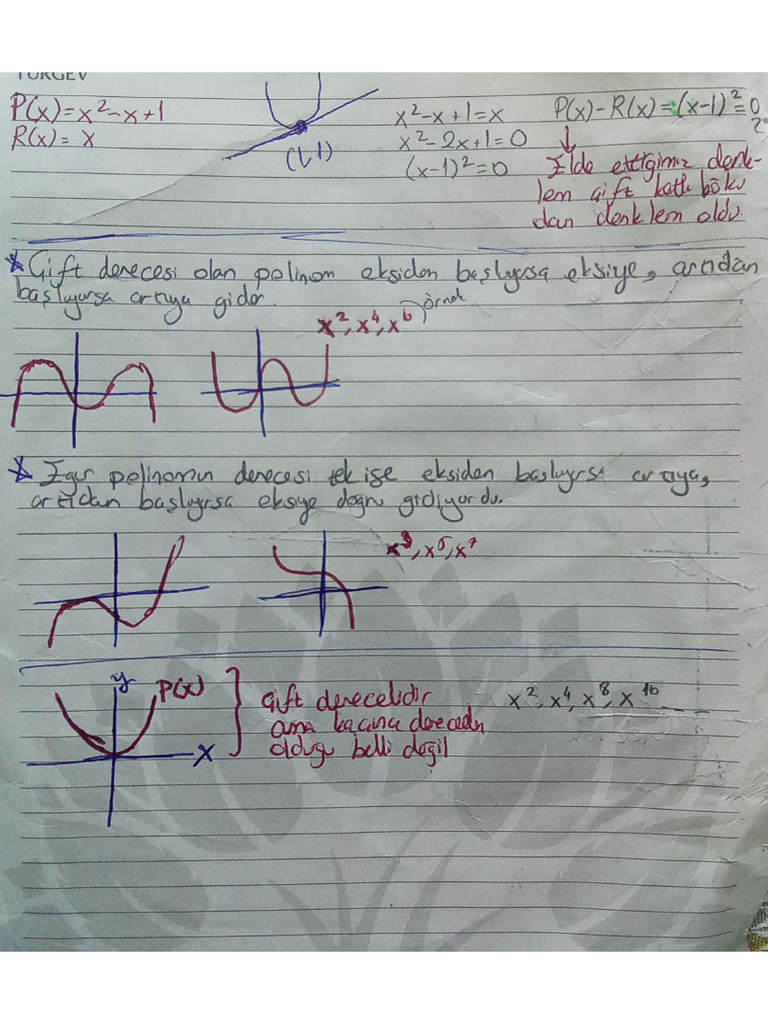 TÜRGEV
P(x)=x²-x+1
R(x)= x
(1,1)
x²-x+1=x
x²-2x+1=0
(x-1)²=0
P(x)-R(x)=(x-1)²=0
↓
Elde ettiğimiz denk-
lem çift katlı bökü
dan denklem oldu.
* Çift derecesi olan polinom eksiden başlıyorsa eksiye, artıdan
başlıyorsa artıya gider.
x², x⁴, x⁶ örnek
* Eğer polinomun derecesi tek ise eksiden başlıyorsa artıya,
artıdan başlıyorsa eksiye doğru gidiyordu.
x³, x⁵, x⁷
y
P(x)
x
Çift derecelidir
ama kaçıncı dereceden
olduğu belli değil
x², x⁴, x⁸, x¹⁶